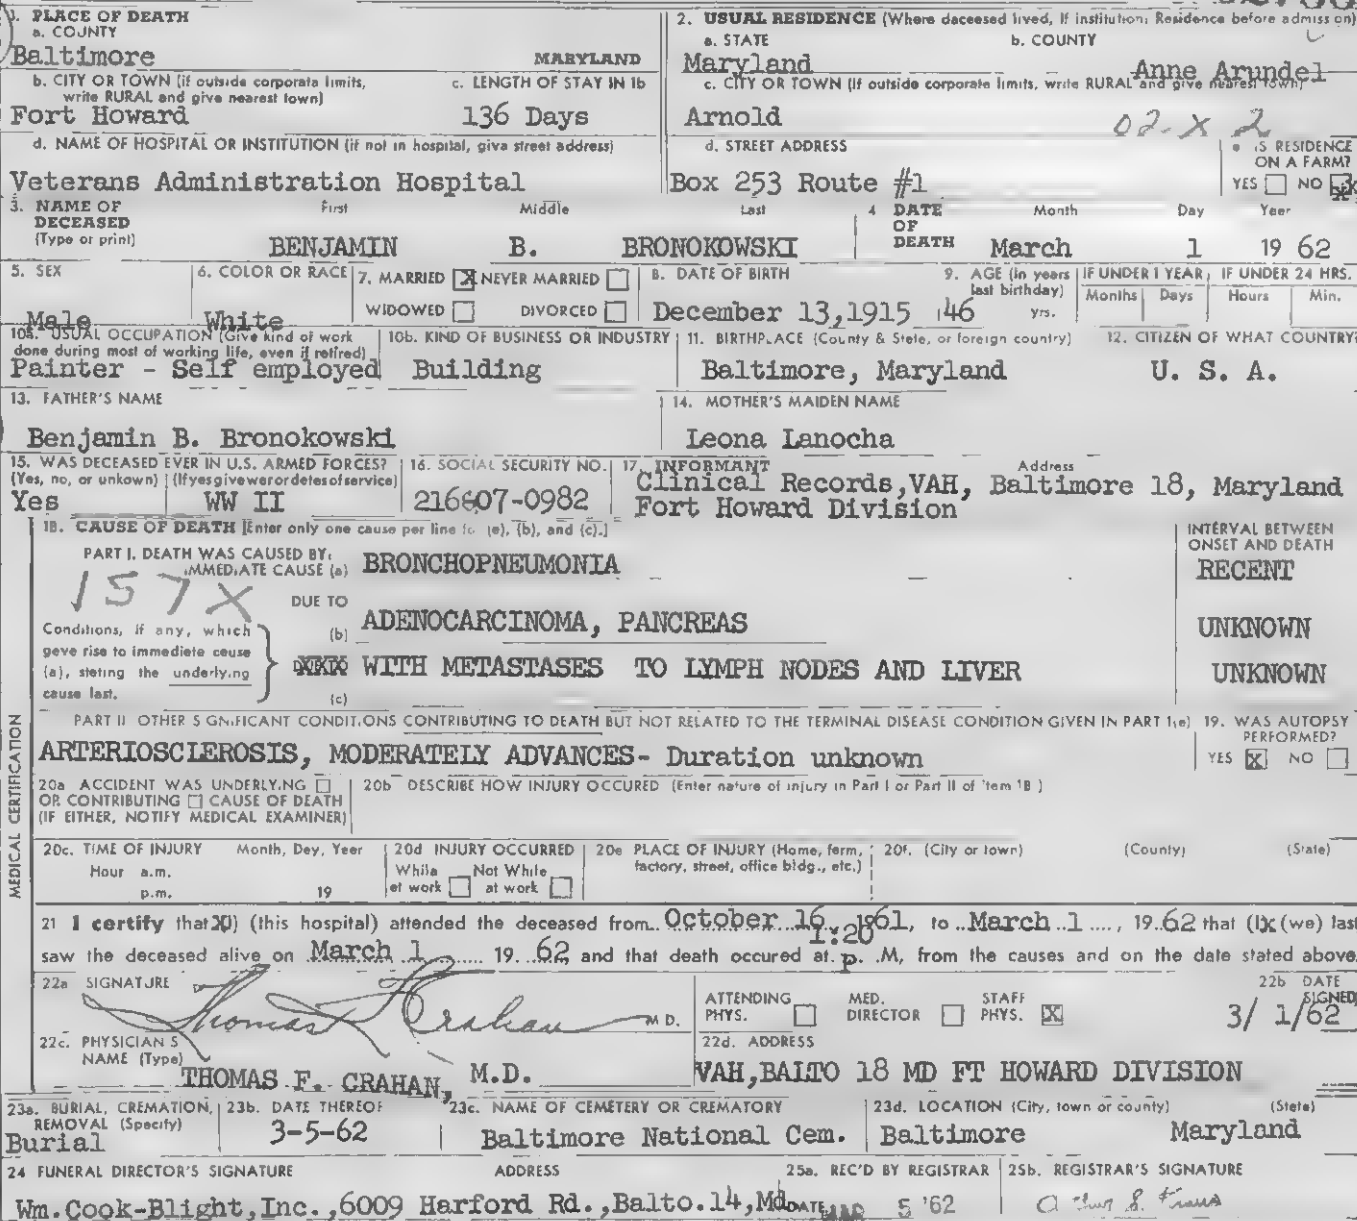 1. PLACE OF DEATH
a. COUNTY
Baltimore MARYLAND
2. USUAL RESIDENCE (Where daceesed lived, If institution: Residence before admission)
a. STATE b. COUNTY
Maryland Anne Arundel
b. CITY OR TOWN (if outside corporate limits, write RURAL and give nearest town)
Fort Howard
c. LENGTH OF STAY IN 1b
136 Days
c. CITY OR TOWN (If outside corporate limits, write RURAL and give nearest town)
Arnold
02-X 2
d. NAME OF HOSPITAL OR INSTITUTION (if not in hospital, give street address)
Veterans Administration Hospital
d. STREET ADDRESS
Box 253 Route #1
e IS RESIDENCE ON A FARM?
YES NO X
3. NAME OF DECEASED (Type or print)
First Middle Last
BENJAMIN B. BRONOKOWSKI
4 DATE OF DEATH
Month Day Year
March 1 19 62
5. SEX
Male
6. COLOR OR RACE
White
7. MARRIED X NEVER MARRIED
WIDOWED DIVORCED
8. DATE OF BIRTH
December 13,1915
9. AGE (In years last birthday)
46 yrs.
IF UNDER 1 YEAR, IF UNDER 24 HRS.
Months Days Hours Min.
10a. USUAL OCCUPATION (Give kind of work done during most of working life, even if retired)
Painter - Self employed
10b. KIND OF BUSINESS OR INDUSTRY
Building
11. BIRTHPLACE (County & State, or foreign country)
Baltimore, Maryland
12. CITIZEN OF WHAT COUNTRY?
U. S. A.
13. FATHER'S NAME
Benjamin B. Bronokowski
14. MOTHER'S MAIDEN NAME
Leona Lanocha
15. WAS DECEASED EVER IN U.S. ARMED FORCES?
(Yes, no, or unkown) (If yes give war or dates of service)
Yes WW II
16. SOCIAL SECURITY NO.
216607-0982
17. INFORMANT Address
Clinical Records,VAH, Baltimore 18, Maryland
Fort Howard Division
MEDICAL CERTIFICATION
18. CAUSE OF DEATH [Enter only one cause per line for (a), (b), and (c).]
INTERVAL BETWEEN ONSET AND DEATH
PART I. DEATH WAS CAUSED BY:
IMMEDIATE CAUSE (a) BRONCHOPNEUMONIA RECENT
157X
DUE TO
(b) ADENOCARCINOMA, PANCREAS UNKNOWN
Conditions, if any, which gave rise to immediate cause (a), stating the underlying cause last.
WITH METASTASES TO LYMPH NODES AND LIVER UNKNOWN
(c)
PART II OTHER SIGNIFICANT CONDITIONS CONTRIBUTING TO DEATH BUT NOT RELATED TO THE TERMINAL DISEASE CONDITION GIVEN IN PART 1(a)
ARTERIOSCLEROSIS, MODERATELY ADVANCES- Duration unknown
19. WAS AUTOPSY PERFORMED?
YES X NO
20a ACCIDENT WAS UNDERLYING
OR CONTRIBUTING CAUSE OF DEATH
(IF EITHER, NOTIFY MEDICAL EXAMINER)
20b DESCRIBE HOW INJURY OCCURED (Enter nature of injury in Part I or Part II of item 18)
20c. TIME OF INJURY Month, Day, Year
Hour a.m.
p.m. 19
20d INJURY OCCURRED
While at work Not While at work
20e PLACE OF INJURY (Home, farm, factory, street, office bldg., etc.)
20f. (City or town) (County) (State)
21 I certify that X) (this hospital) attended the deceased from October 16 1961, to March 1, 1962 that (IX (we) last
saw the deceased alive on March 1 19 62 and that death occured at 1:20 p. M, from the causes and on the date stated above.
22a SIGNATURE
Thomas F. Crahan M D.
ATTENDING PHYS. MED. DIRECTOR STAFF PHYS. X
22b DATE SIGNED
3/ 1/62
22c. PHYSICIAN'S NAME (Type)
THOMAS F. CRAHAN, M.D.
22d. ADDRESS
VAH,BALTO 18 MD FT HOWARD DIVISION
23a. BURIAL, CREMATION, REMOVAL (Specify)
Burial
23b. DATE THEREOF
3-5-62
23c. NAME OF CEMETERY OR CREMATORY
Baltimore National Cem.
23d. LOCATION (City, town or county) (State)
Baltimore Maryland
24 FUNERAL DIRECTOR'S SIGNATURE ADDRESS
Wm.Cook-Blight,Inc.,6009 Harford Rd.,Balto.14,Md
25a. REC'D BY REGISTRAR
DATE MAR 5 '62
25b. REGISTRAR'S SIGNATURE